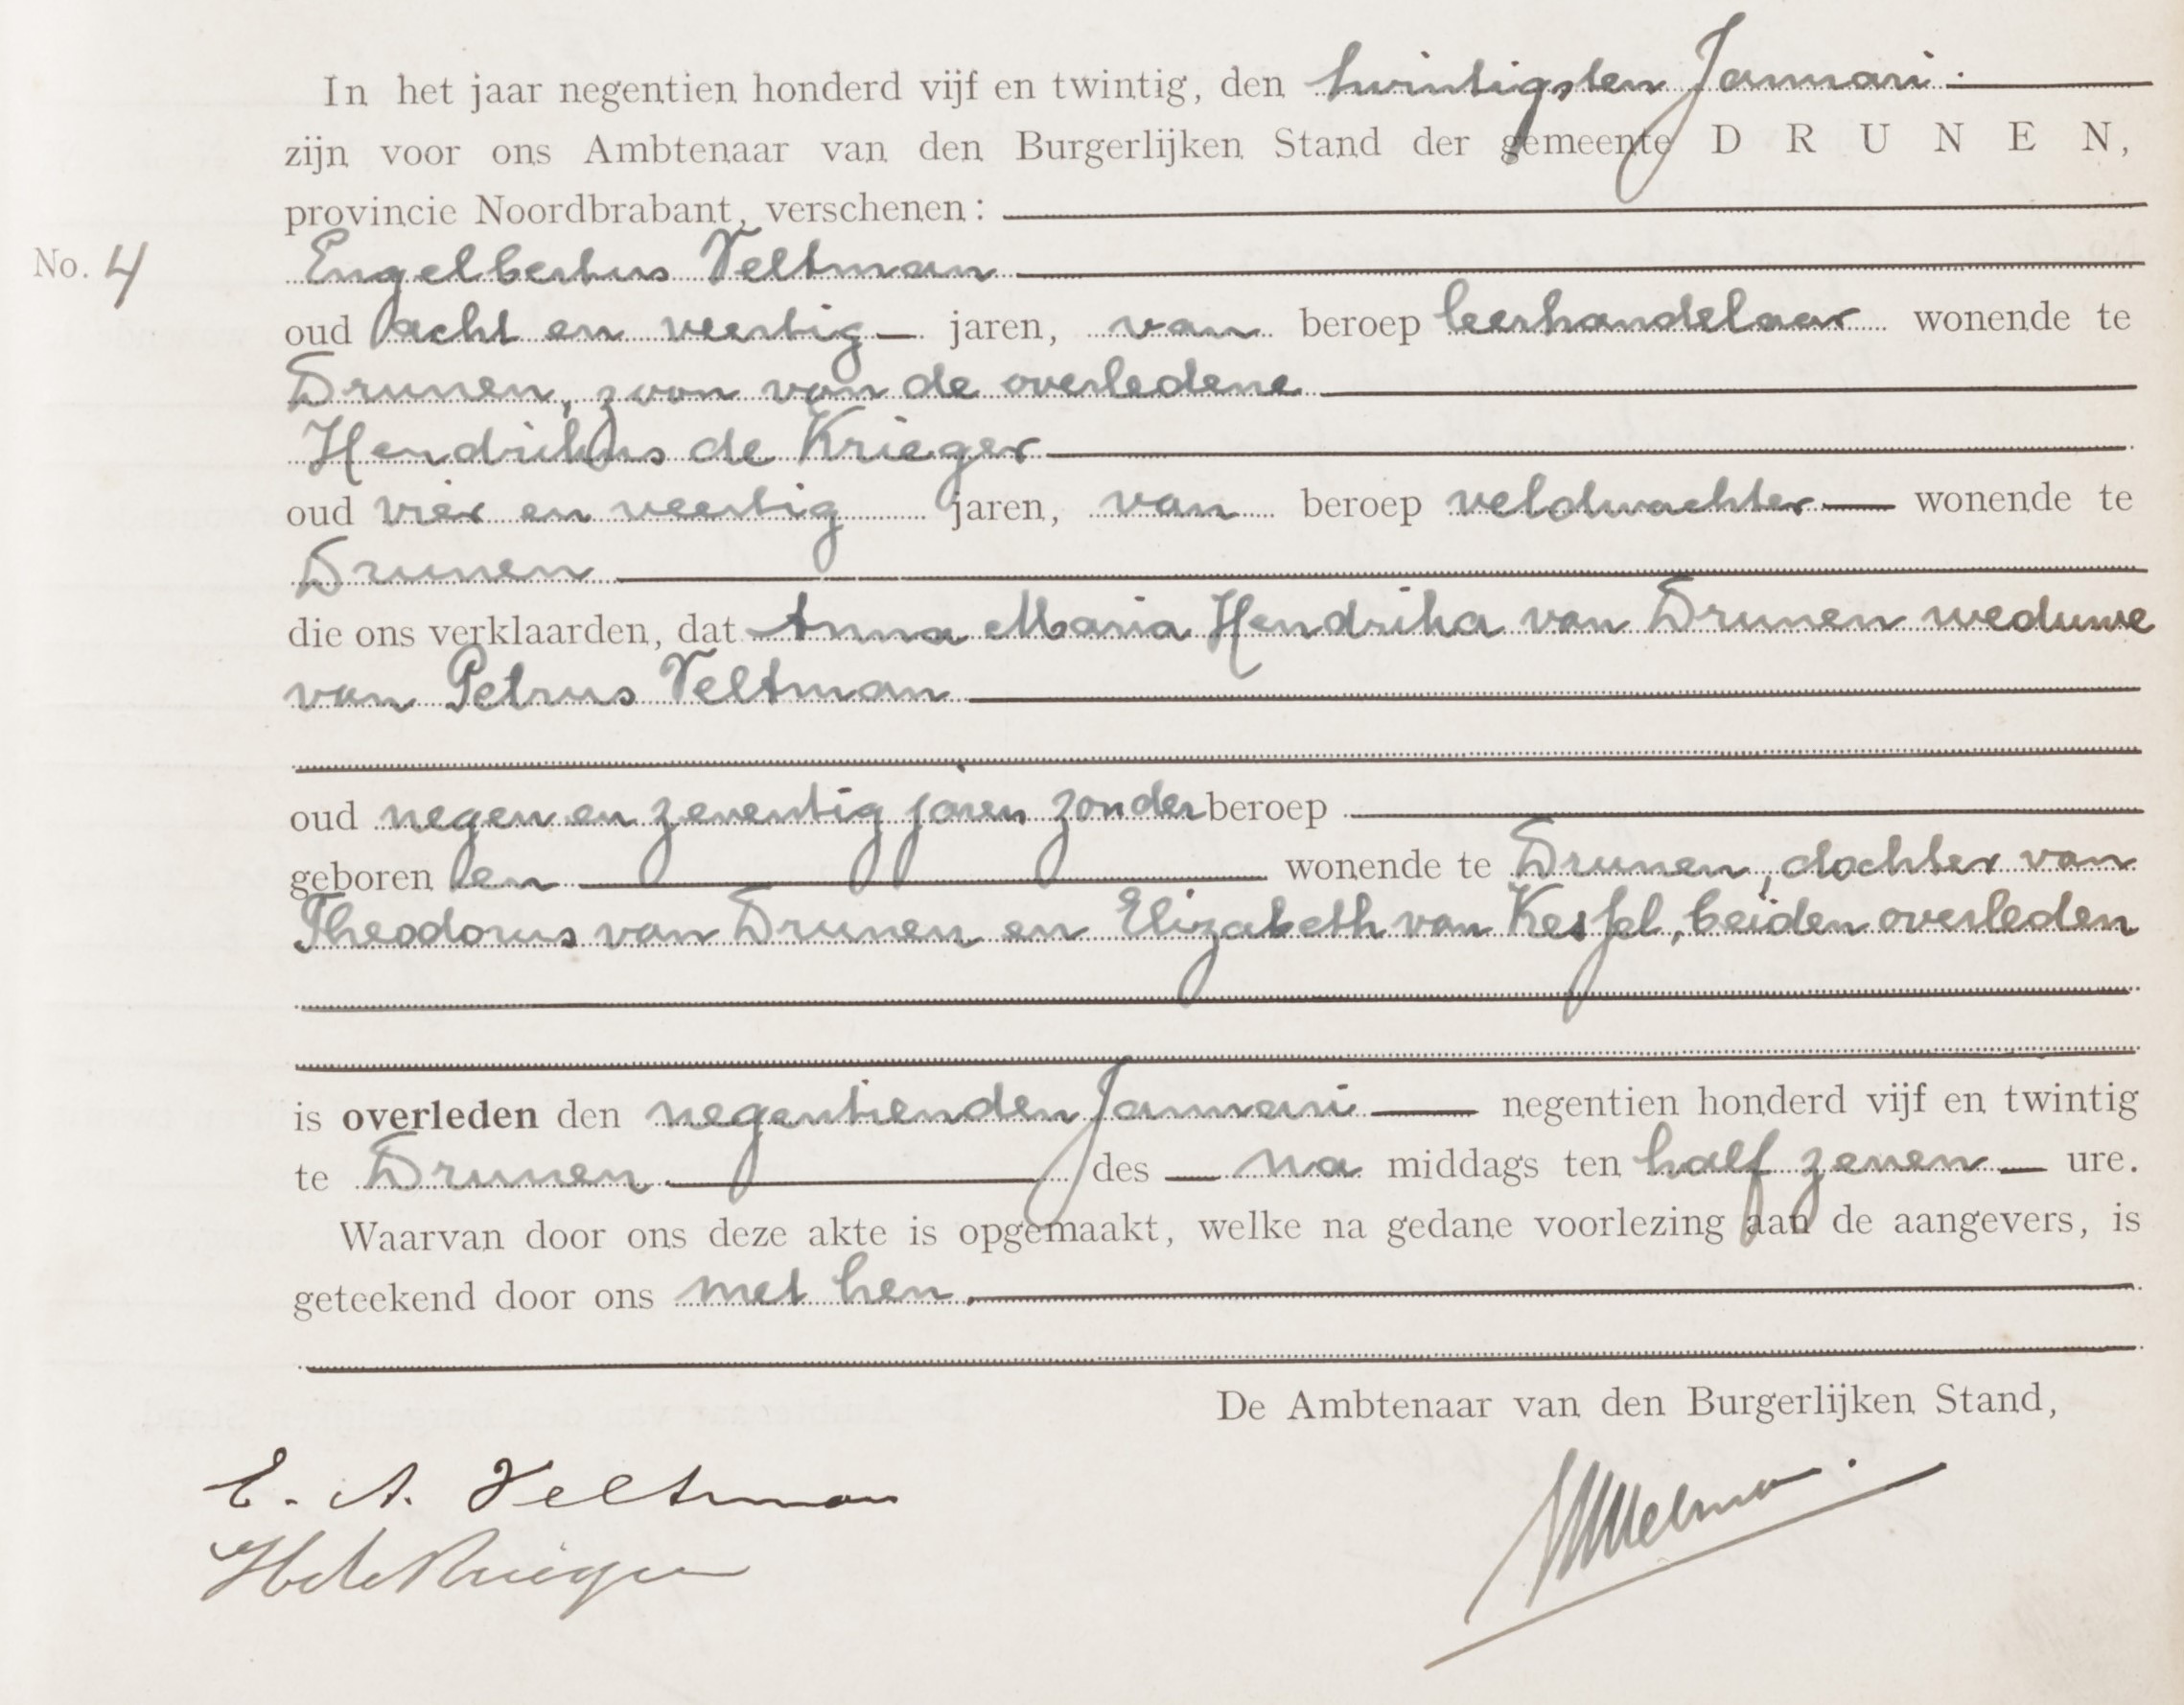 In het jaar negentien honderd vijf en twintig, den twintigsten Januari.
zijn voor ons Ambtenaar van den Burgerlijken Stand der gemeente DRUNEN,
provincie Noordbrabant, verschenen:
No. 4 Engelbertus Veltman
oud acht en veertig jaren, van beroep leerhandelaar wonende te
Drunen, zoon van de overledene
Hendrikus de Krieger
oud vier en veertig jaren, van beroep veldwachter wonende te
Drunen
die ons verklaarden, dat Anna Maria Hendrika van Drunen weduwe
van Petrus Veltman
oud negen en zeventig jaren zonder beroep
geboren en wonende te Drunen, dochter van
Theodorus van Drunen en Elizabeth van Kessel, beiden overleden
is overleden den negentienden Januari negentien honderd vijf en twintig
te Drunen des na middags ten half zeven ure.
Waarvan door ons deze akte is opgemaakt, welke na gedane voorlezing aan de aangevers, is
geteekend door ons met hen.
De Ambtenaar van den Burgerlijken Stand,
E. A. Veltman
H de Krieger